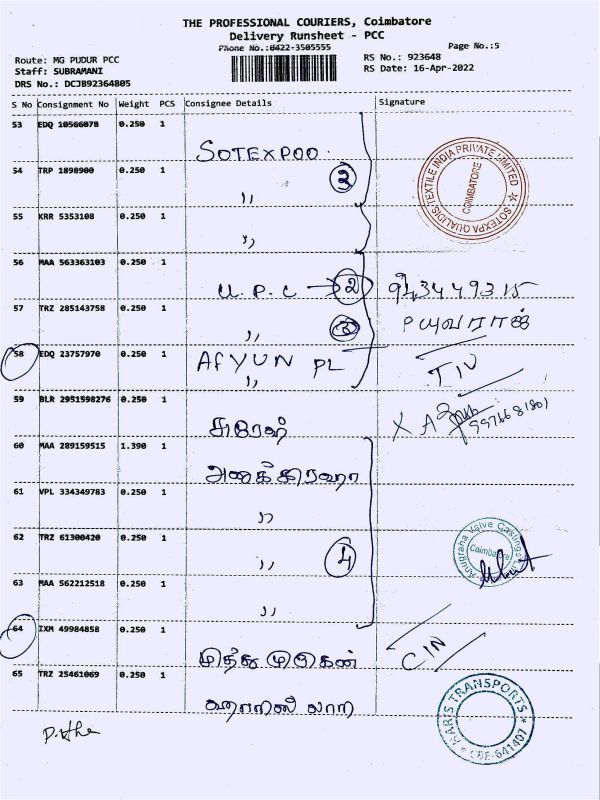 THE PROFESSIONAL COURIERS, Coimbatore
Delivery Runsheet - PCC
Phone No.:0422-3505555
Page No.:5
Route: MG PUDUR PCC
RS No.: 923648
Staff: SUBRAMANI
RS Date: 16-Apr-2022
DRS No.: DCJB92364805
S No Consignment No Weight PCS Consignee Details Signature
53 EDQ 10566078 0.250 1
SOTEXPOO
54 TRP 1898900 0.250 1
3
SOTEXPA QUALIDIS TEXTILE INDIA PRIVATE LIMITED
COIMBATORE
,,
55 KRR 5353108 0.250 1
,,
56 MAA 563363103 0.250 1
U.P.C → 2
57 TRZ 285143758 0.250 1
,, 3
58 EDQ 23757970 0.250 1
AFYUN PL
,,
59 BLR 2951598276 0.250 1
சுரேஷ்
9976681801
60 MAA 289159515 1.390 1
61 VPL 334349783 0.250 1
,,
62 TRZ 61300420 0.250 1
,, 4
Anugraha Valve Castings
Coimbatore
63 MAA 562212518 0.250 1
,,
64 IXM 49984858 0.250 1
CIN
65 TRZ 25461069 0.250 1
HARIS TRANSPORTS
CBE-641407